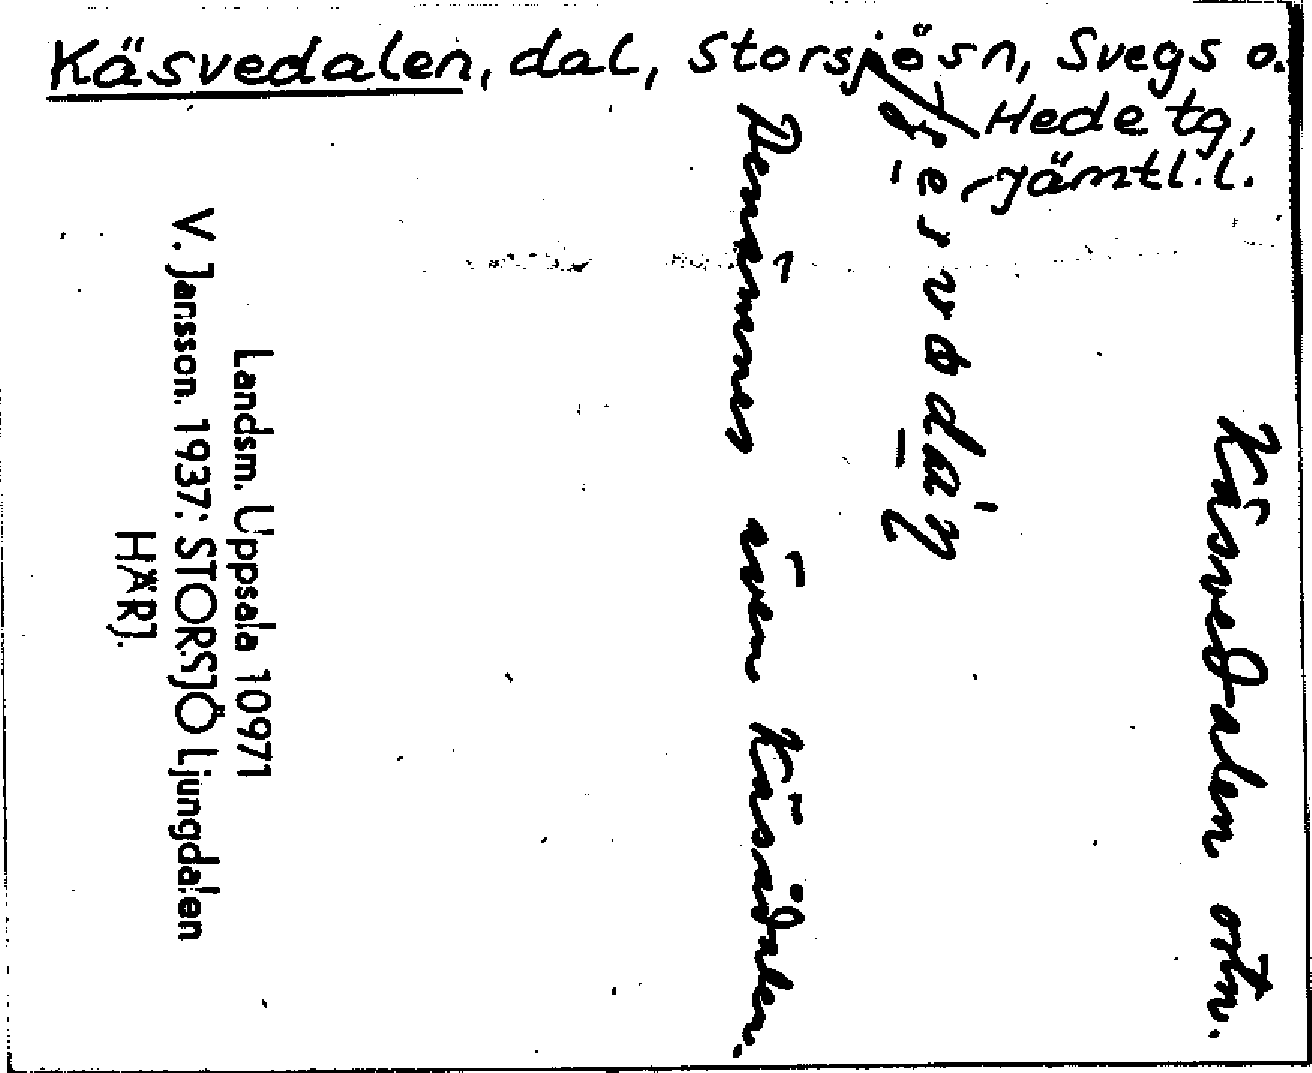 Käsvedalen, dal, Storsjösn, Svegs o.
Hede tg,
Jämtl. l.
Käsvedalen otn.
Benämnes även Käsådalen.
Landsm. Uppsala 10971
V. Jansson. 1937: STORSJÖ Ljungdalen
HÄRJ.